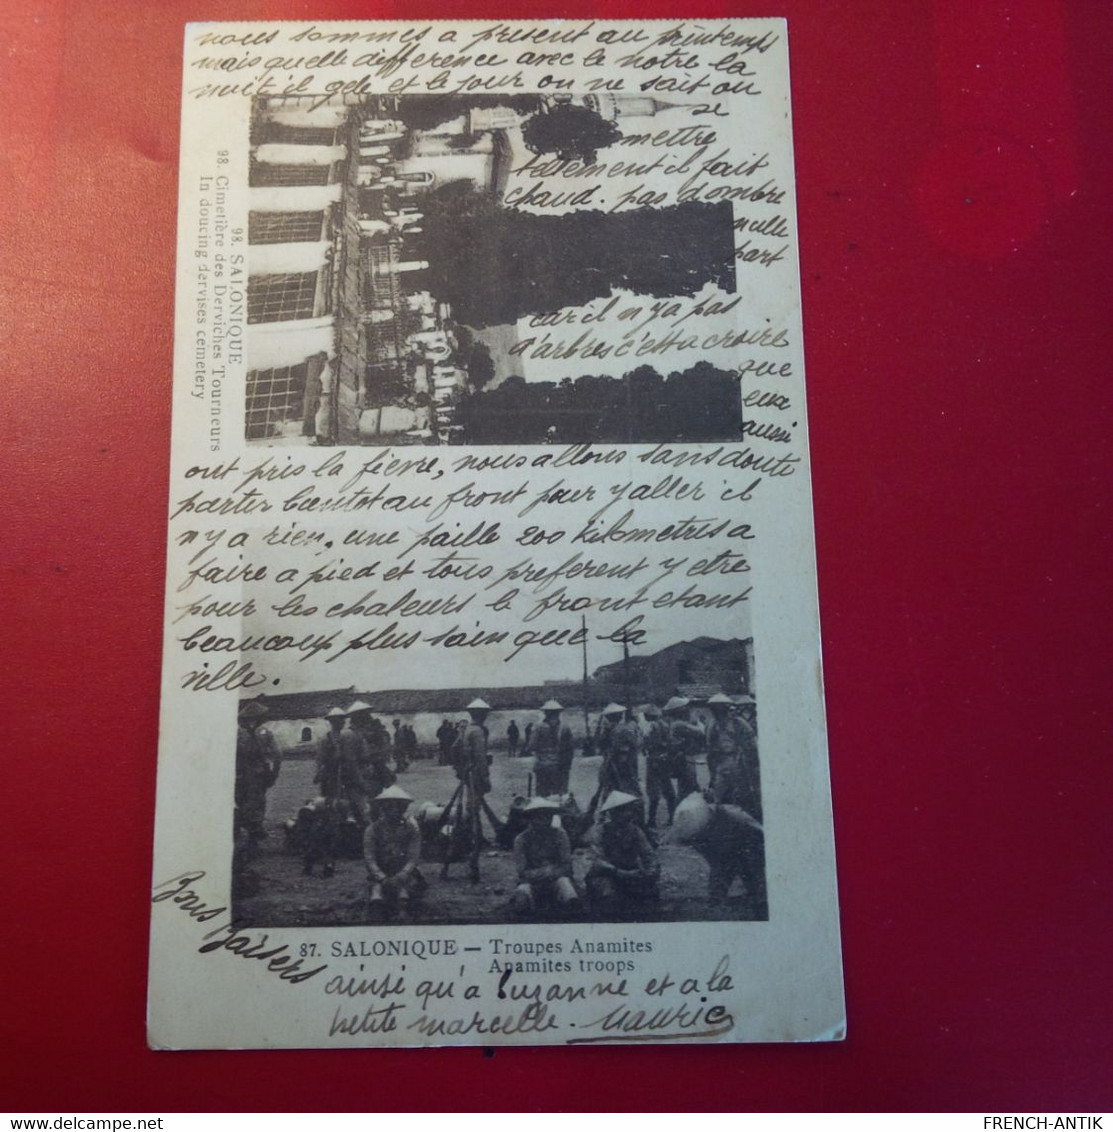 nous sommes a present au printemps
mais quelle difference avec le notre la
nuit il gele et le jour on ne sait ou
se
mettre
tellement il fait
chaud. pas d'ombre
nulle
part
car il n y a pas
d'arbres c'est a croire
que
eux
aussi
ont pris la fievre, nous allons sans doute
partir bientot au front pour y aller il
n y a rien, une paille 200 kilometres a
faire a pied et tous preferent y etre
pour les chaleurs le front etant
beaucoup plus sain que la
ville.
98. SALONIQUE
98. Cimetière des Derviches Tourneurs
In doucing dervises cemetery
87. SALONIQUE — Troupes Anamites
Anamites troops
Bons Baisers
ainsi qu'a Suzanne et a la
petite marcelle. Maurice
FRENCH-ANTIK